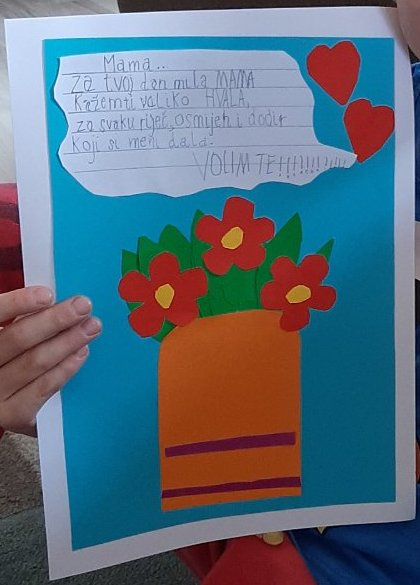 Mama..
Za tvoj dan mila MAMA
Kažem ti veliko HVALA,
za svaku riječ, osmijeh i dodir
koji si meni dala.
VOLIM TE!!!!!!!!!!!